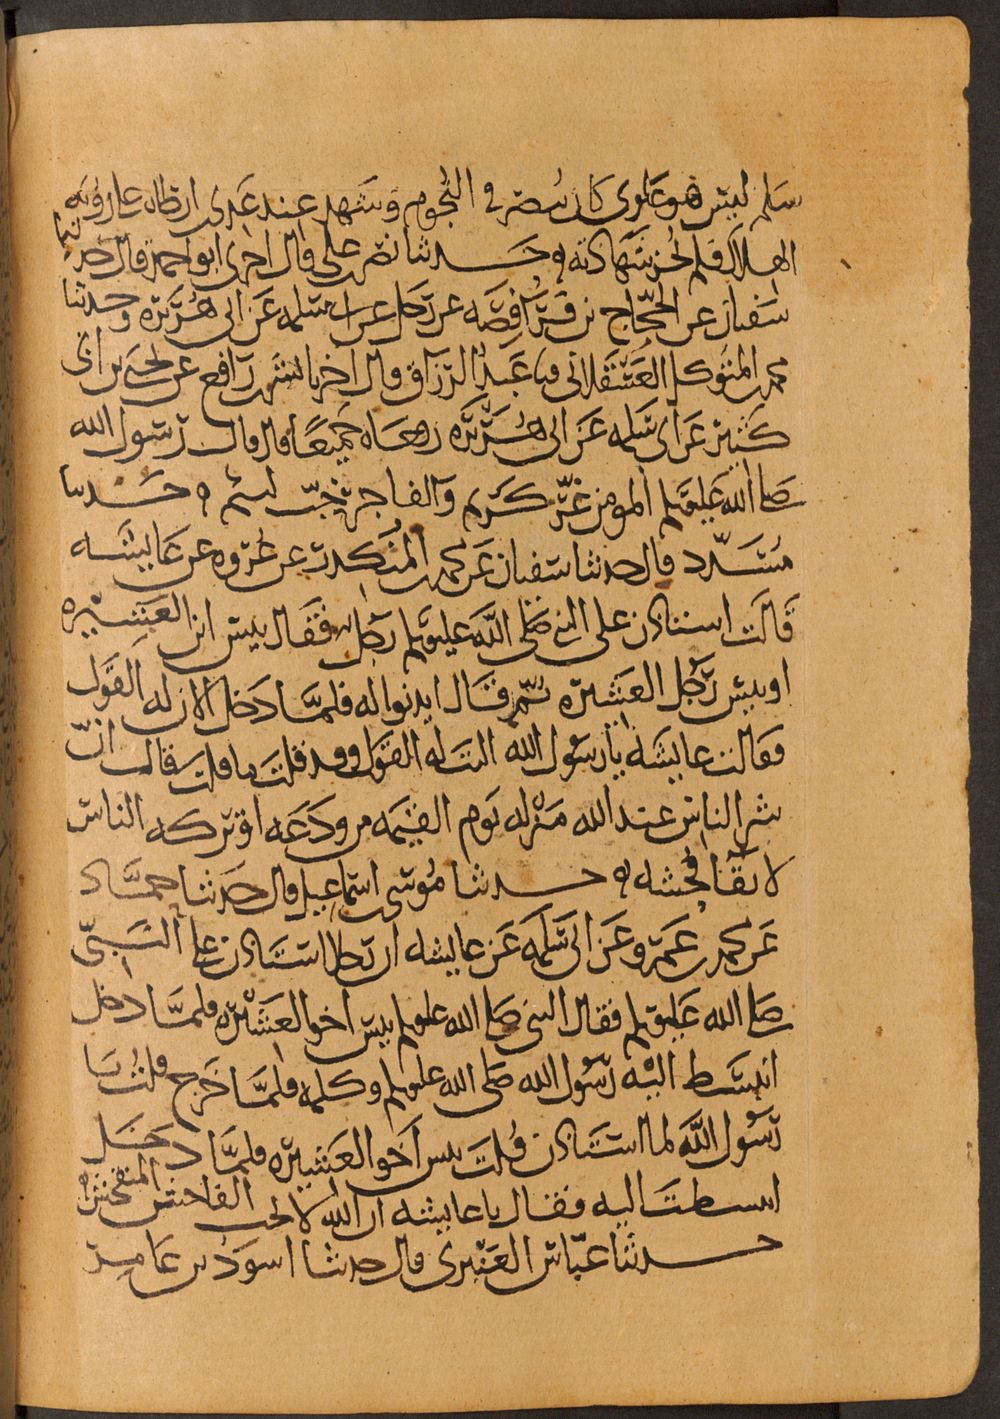 سلم ليس هو علوى كان يبصر فى النجوم وشهد عند عدى بن ارطاه على رؤيه
الهلال فلم يجز شهادته ه حدثنا نصر بن على قال اخبرنى ابو احمد قال حدثنا
سفيان عن الحجاج بن فرافصه عن رجل عن ابى سلمه عن ابى هريره وحدثنا
محمد بن المتوكل العسقلانى قال عبد الرزاق قال اخبرنا بشر بن رافع عن يحيى بن ابى
كثير عن ابى سلمه عن ابى هريره رفعاه جميعا قال قال رسول الله
صلى الله عليه وسلم المومن غر كريم والفاجر خب لئيم ه حدثنا
مسدد قال حدثنا سفيان عن محمد بن المنكدر عن عروه عن عايشه
قالت استاذن على النبى صلى الله عليه وسلم رجل فقال بيس ابن العشيره
او بيس رجل العشيره ثم قال ايذنوا له فلما دخل الان له القول
فقالت عايشه يا رسول الله النت له القول وقد قلت ما قلت قال ان
شر الناس عند الله منزله يوم القيمه من ودعه او تركه الناس
لاتقا فحشه ه حدثنا موسى بن اسماعيل قال حدثنا حماد
عن محمد بن عمرو عن ابى سلمه عن عايشه ان رجلا استاذن على النبى
صلى الله عليه وسلم فقال النبى صلى الله عليه وسلم بيس اخو العشيره فلما دخل
انبسط اليه رسول الله صلى الله عليه وسلم وكلمه فلما خرج قلت يا
رسول الله لما استاذن قلت بيس اخو العشيره فلما دخل
انبسطت اليه فقال يا عايشه ان الله لا يحب الفاحش المتفحش ه
حدثنا عباس العنبرى قال حدثنا اسود بن عامر